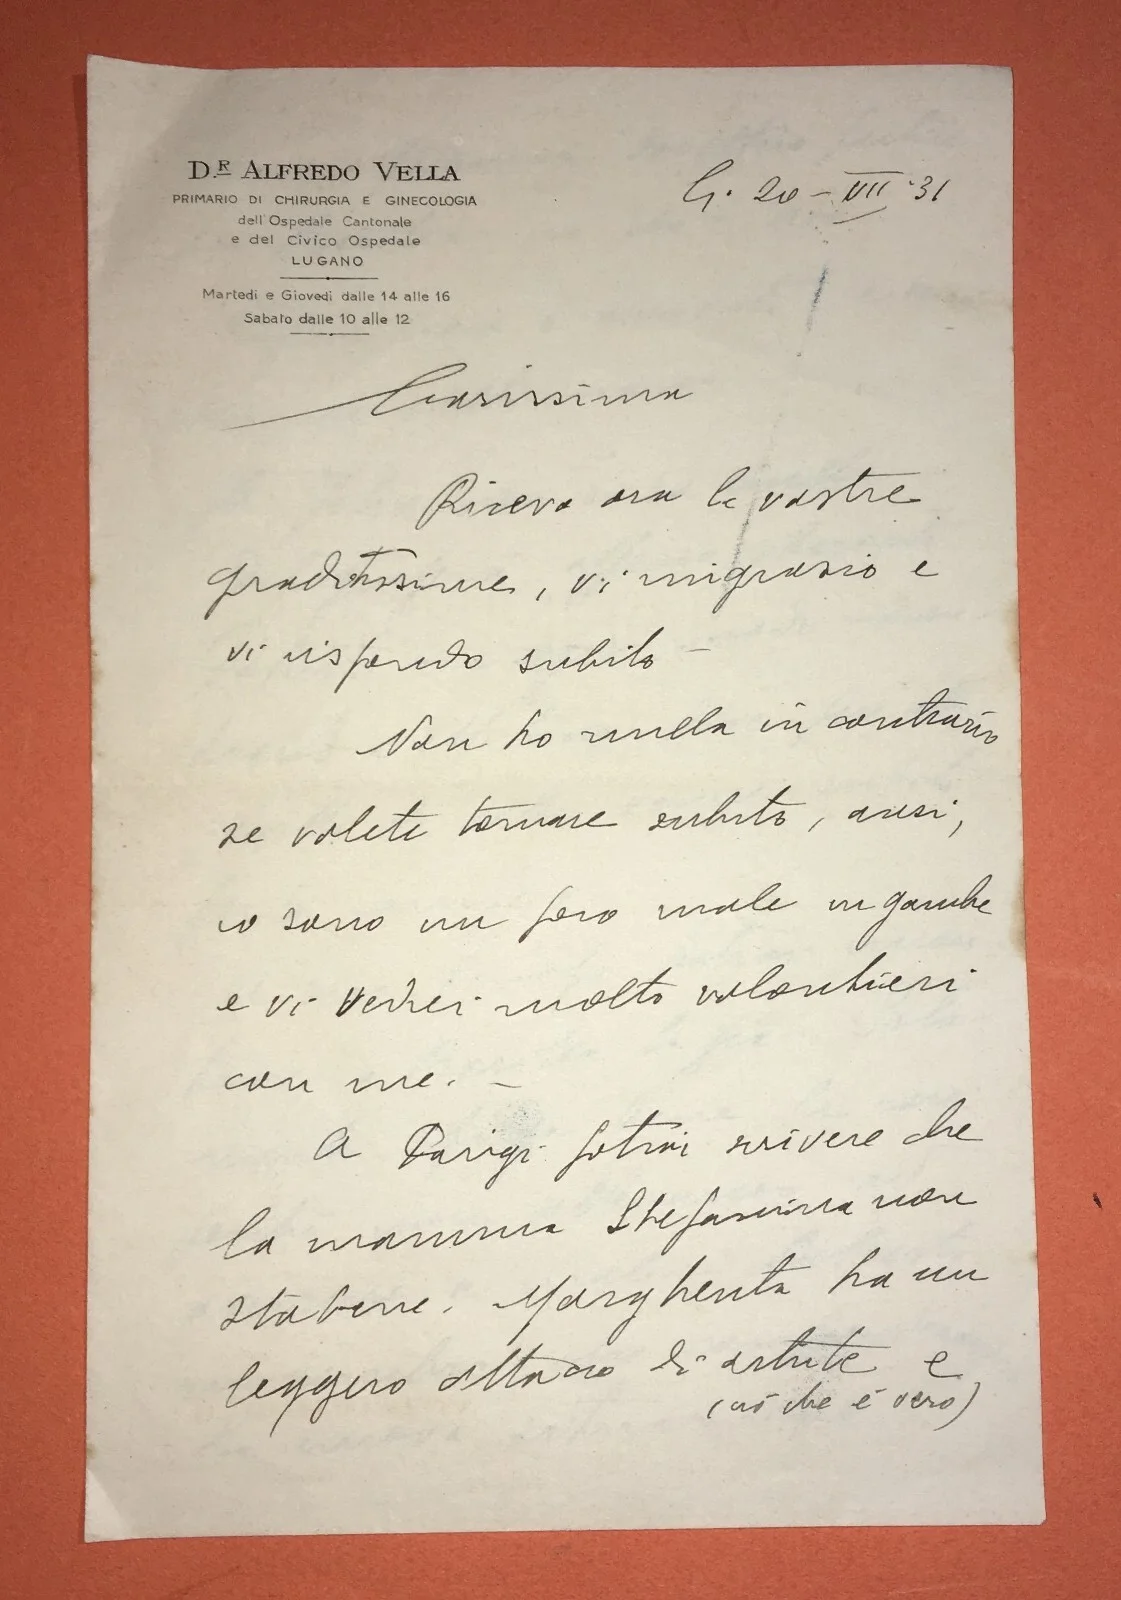 DR ALFREDO VELLA
PRIMARIO DI CHIRURGIA E GINECOLOGIA
dell'Ospedale Cantonale
e del Civico Ospedale
LUGANO
Martedi e Giovedi dalle 14 alle 16
Sabato dalle 10 alle 12
20 - VII '31
Carissima
Ricevo ora le vostre
graditissime, vi ringrazio e
vi rispondo subito -
Non ho nulla in contrario
se volete tornare subito, anzi,
io sono un poco male in gambe
e vi vedrei molto volontieri
con me. -
A Parigi potrai scrivere che
la mamma Stefanina non
sta bene. Margherita ha un
leggero attacco di artrite e
(ciò che è vero)